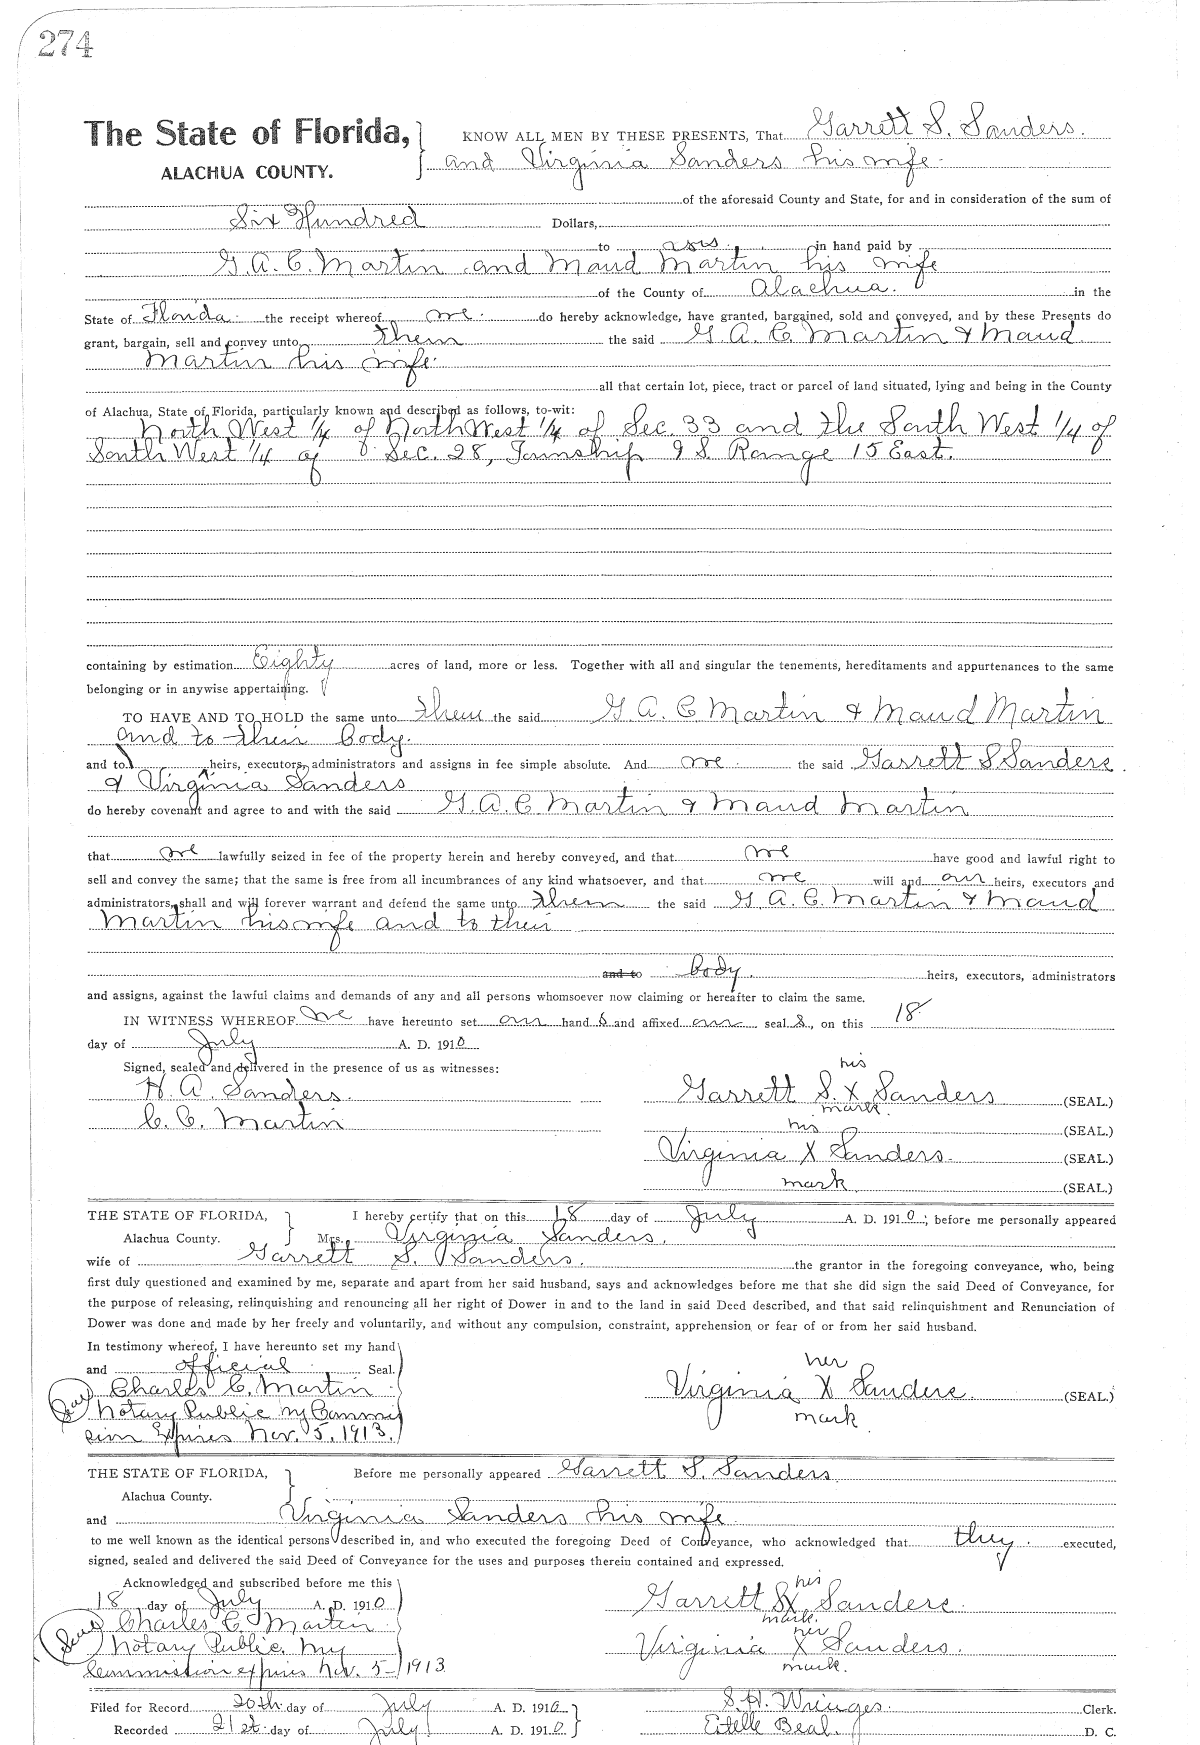 274
The State of Florida, KNOW ALL MEN BY THESE PRESENTS, That Garrett S. Sanders.
ALACHUA COUNTY. and Virginia Sanders his wife
of the aforesaid County and State, for and in consideration of the sum of
Six Hundred Dollars,
to us in hand paid by
G. A. C. Martin and Maud Martin his wife
of the County of Alachua. in the
State of Florida the receipt whereof we do hereby acknowledge, have granted, bargained, sold and conveyed, and by these Presents do
grant, bargain, sell and convey unto them the said G. A. C. Martin & Maud
Martin his wife
all that certain lot, piece, tract or parcel of land situated, lying and being in the County
of Alachua, State of Florida, particularly known and described as follows, to-wit:
North West 1/4 of North West 1/4 of Sec. 33 and the South West 1/4 of
South West 1/4 of Sec. 28, Township 9 S. Range 15 East.
containing by estimation Eighty acres of land, more or less. Together with all and singular the tenements, hereditaments and appurtenances to the same
belonging or in anywise appertaining.
TO HAVE AND TO HOLD the same unto them the said G. A. C Martin & Maud Martin
and to their body.
and to heirs, executors, administrators and assigns in fee simple absolute. And we the said Garrett S Sanders
& Virginia Sanders
do hereby covenant and agree to and with the said G. A. C. Martin & Maud Martin
that we lawfully seized in fee of the property herein and hereby conveyed, and that we have good and lawful right to
sell and convey the same; that the same is free from all incumbrances of any kind whatsoever, and that we will and our heirs, executors and
administrators, shall and will forever warrant and defend the same unto them the said G. A. C. Martin & Maud
Martin his wife and to their
and to body. heirs, executors, administrators
and assigns, against the lawful claims and demands of any and all persons whomsoever now claiming or hereafter to claim the same.
IN WITNESS WHEREOF we have hereunto set our hand s and affixed our seal s, on this 18
day of July A. D. 1910
Signed, sealed and delivered in the presence of us as witnesses:
his
H. A. Sanders. Garrett S. X Sanders (SEAL.)
mark
C. C. Martin his (SEAL.)
Virginia X Sanders. (SEAL.)
mark (SEAL.)
THE STATE OF FLORIDA, I hereby certify that on this 18 day of July A. D. 1910; before me personally appeared
Alachua County. Mrs. Virginia Sanders.
wife of Garrett S. Sanders. the grantor in the foregoing conveyance, who, being
first duly questioned and examined by me, separate and apart from her said husband, says and acknowledges before me that she did sign the said Deed of Conveyance, for
the purpose of releasing, relinquishing and renouncing all her right of Dower in and to the land in said Deed described, and that said relinquishment and Renunciation of
Dower was done and made by her freely and voluntarily, and without any compulsion, constraint, apprehension or fear of or from her said husband.
In testimony whereof, I have hereunto set my hand
and official Seal. her
Seal Charles C. Martin Virginia X Sanders (SEAL.)
Notary Public my Commis mark
sion Expires Nov. 5, 1913.
THE STATE OF FLORIDA, Before me personally appeared Garrett S. Sanders
Alachua County.
and Virginia Sanders his wife
to me well known as the identical persons described in, and who executed the foregoing Deed of Conveyance, who acknowledged that they executed,
signed, sealed and delivered the said Deed of Conveyance for the uses and purposes therein contained and expressed.
Acknowledged and subscribed before me this his
18 day of July A. D. 1910 Garrett S X Sanders.
mark.
Seal Charles C. Martin her
Notary Public. my Virginia X Sanders.
Commission expires Nov. 5- 1913 mark.
Filed for Record 20th day of July A. D. 1910 S. H. Wienges. Clerk.
Recorded 21st day of July A. D. 1910. Estelle Beal. D. C.